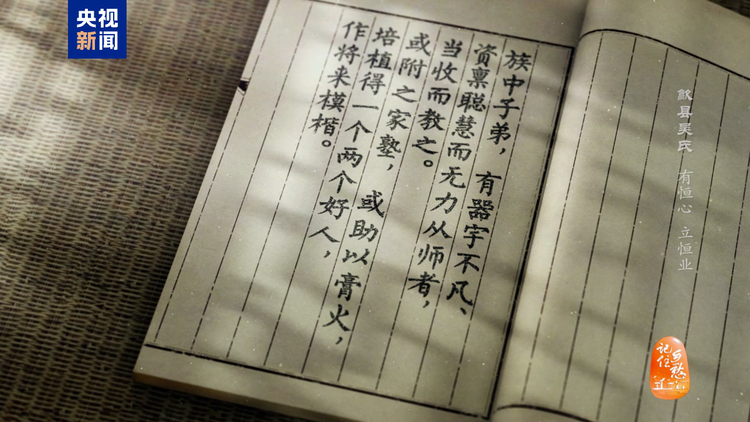 央视
新闻
族中子弟，有器宇不凡、
资禀聪慧而无力从师者，
当收而教之。
或附之家塾，或助以膏火，
培植得一个两个好人，
作将来模楷。
歙县吴氏 有恒心 立恒业
记住乡愁